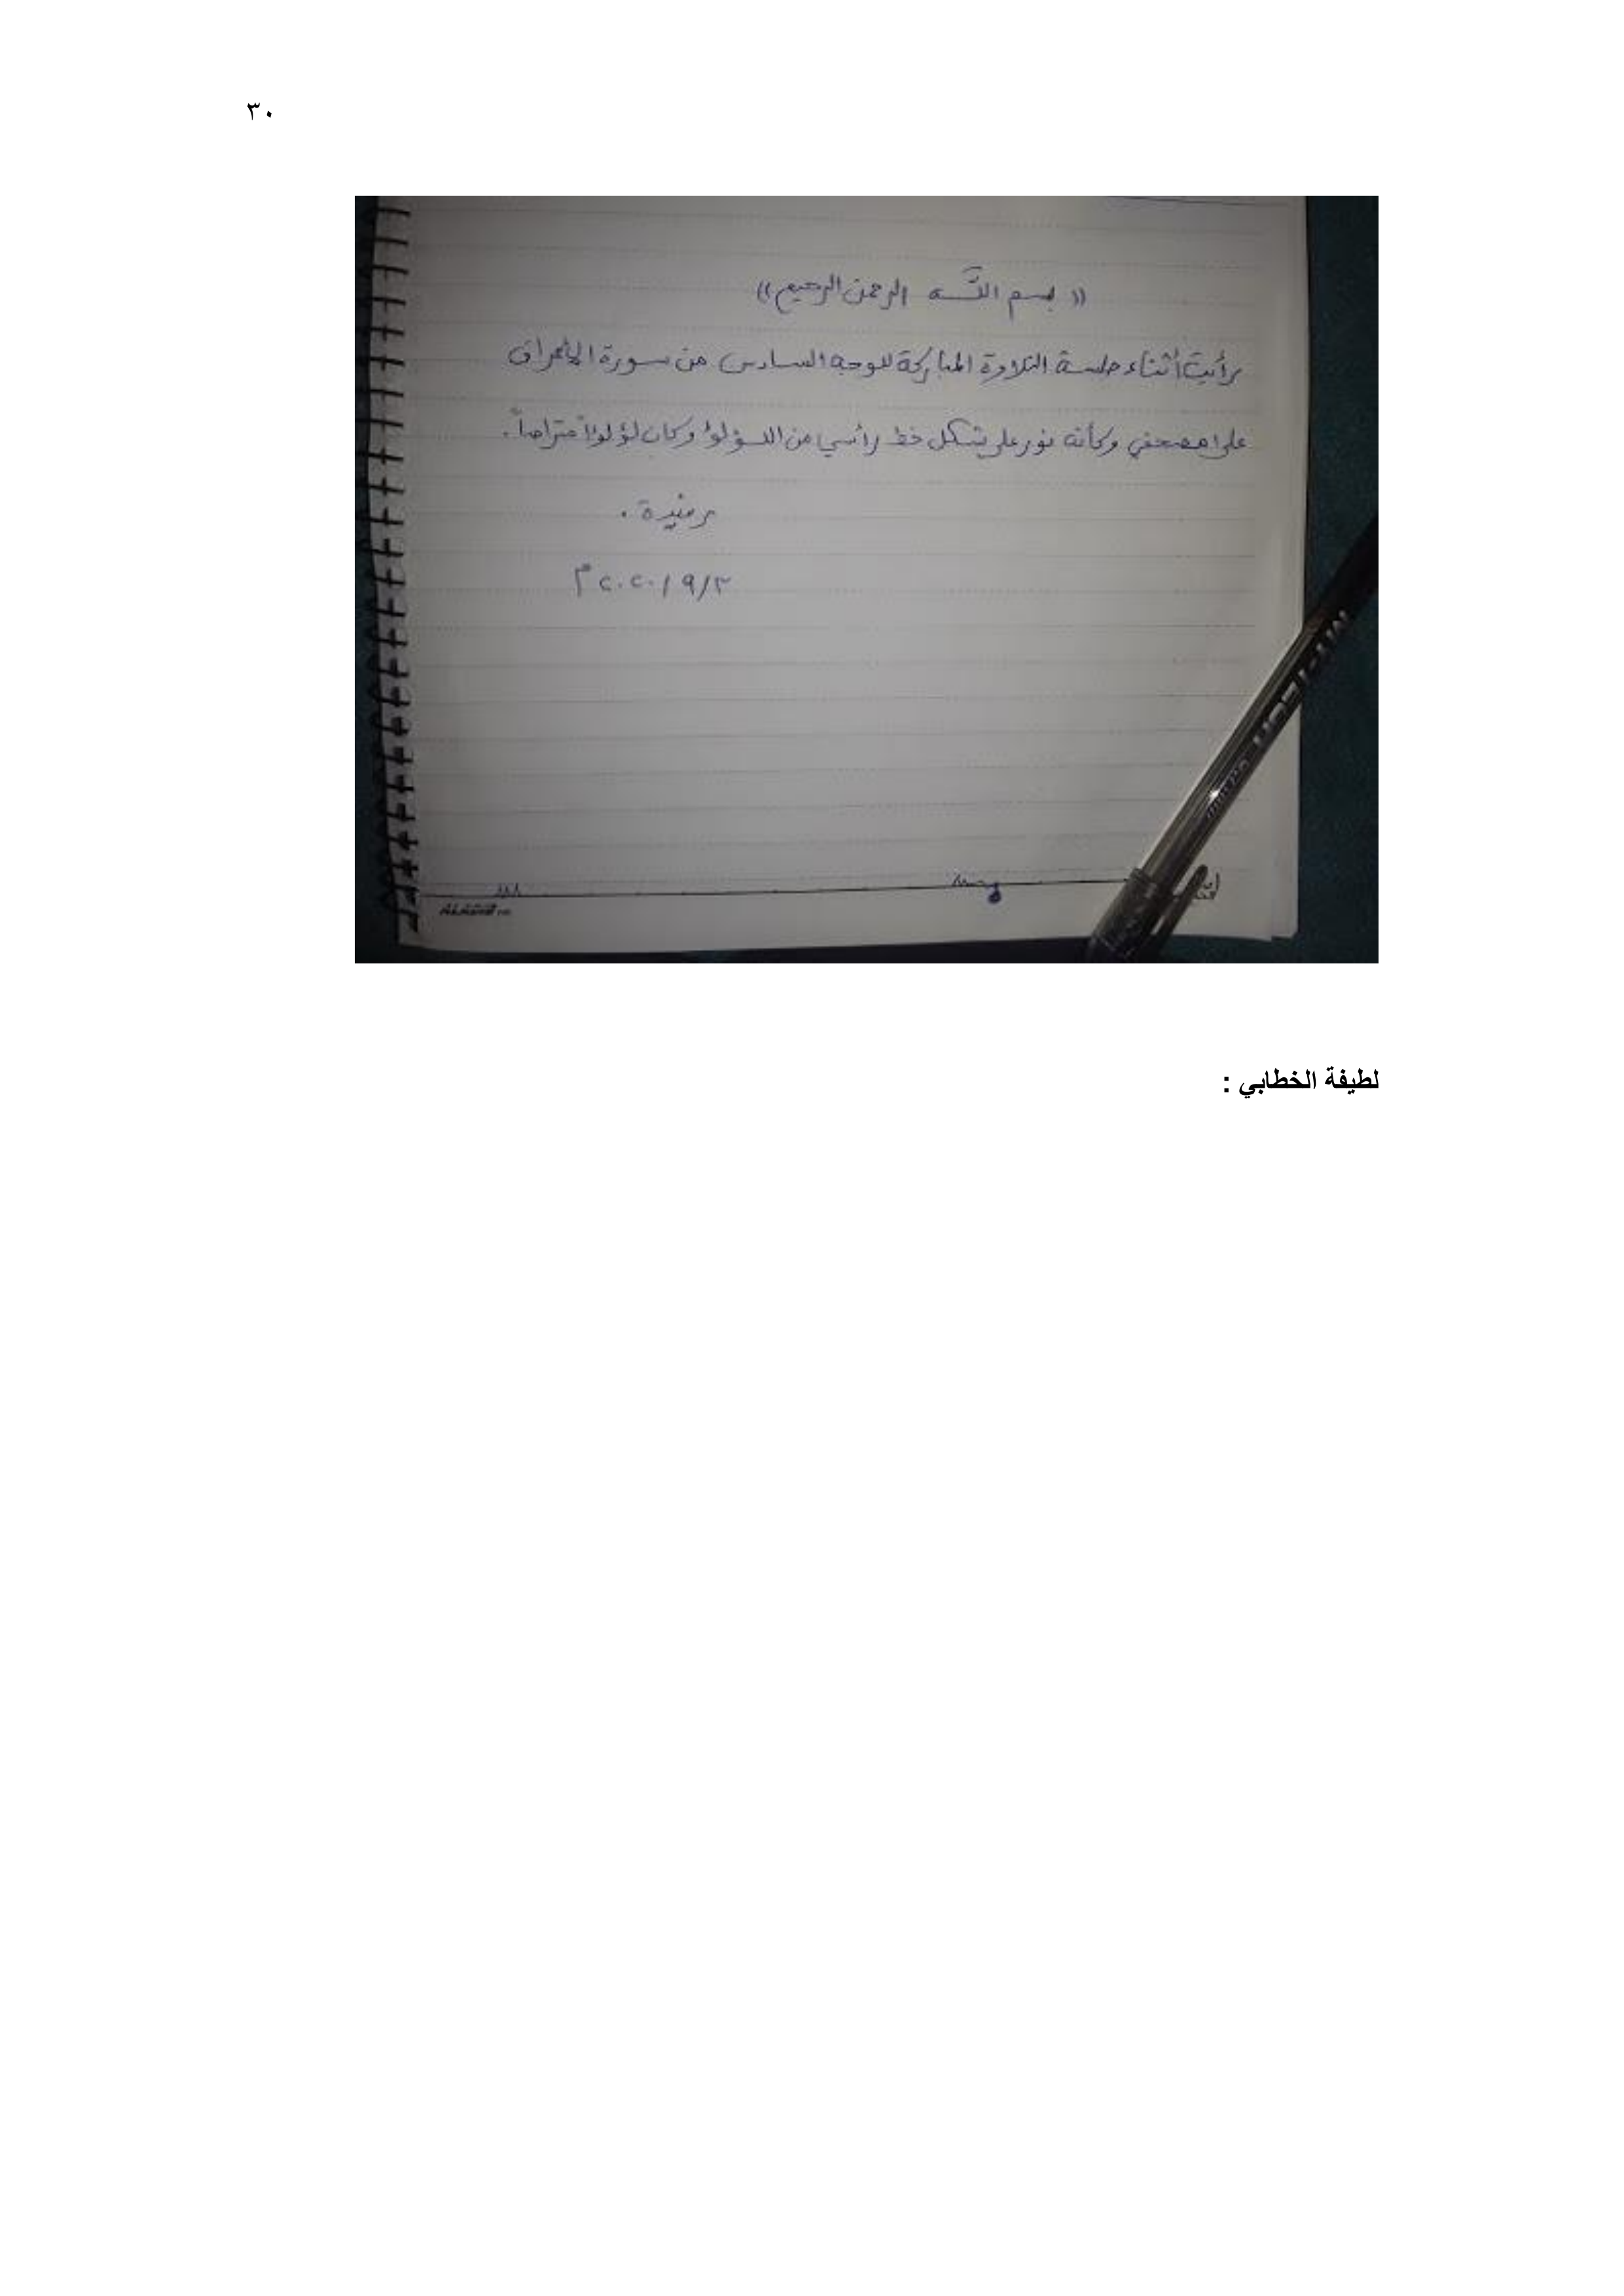 ٣٠
(( بسم اللّه الرحمن الرحيم ))
رأيت أثناء جلسة التلاوة المباركة للوجه السادس من سورة الأعراف
على مصحفي وكأنه نور على شكل خط رأسي من اللؤلؤ وكان لؤلؤاً متراصاً .
رفيدة .
٢٠٢٠/٩/٣ م
لطيفة الخطابي :